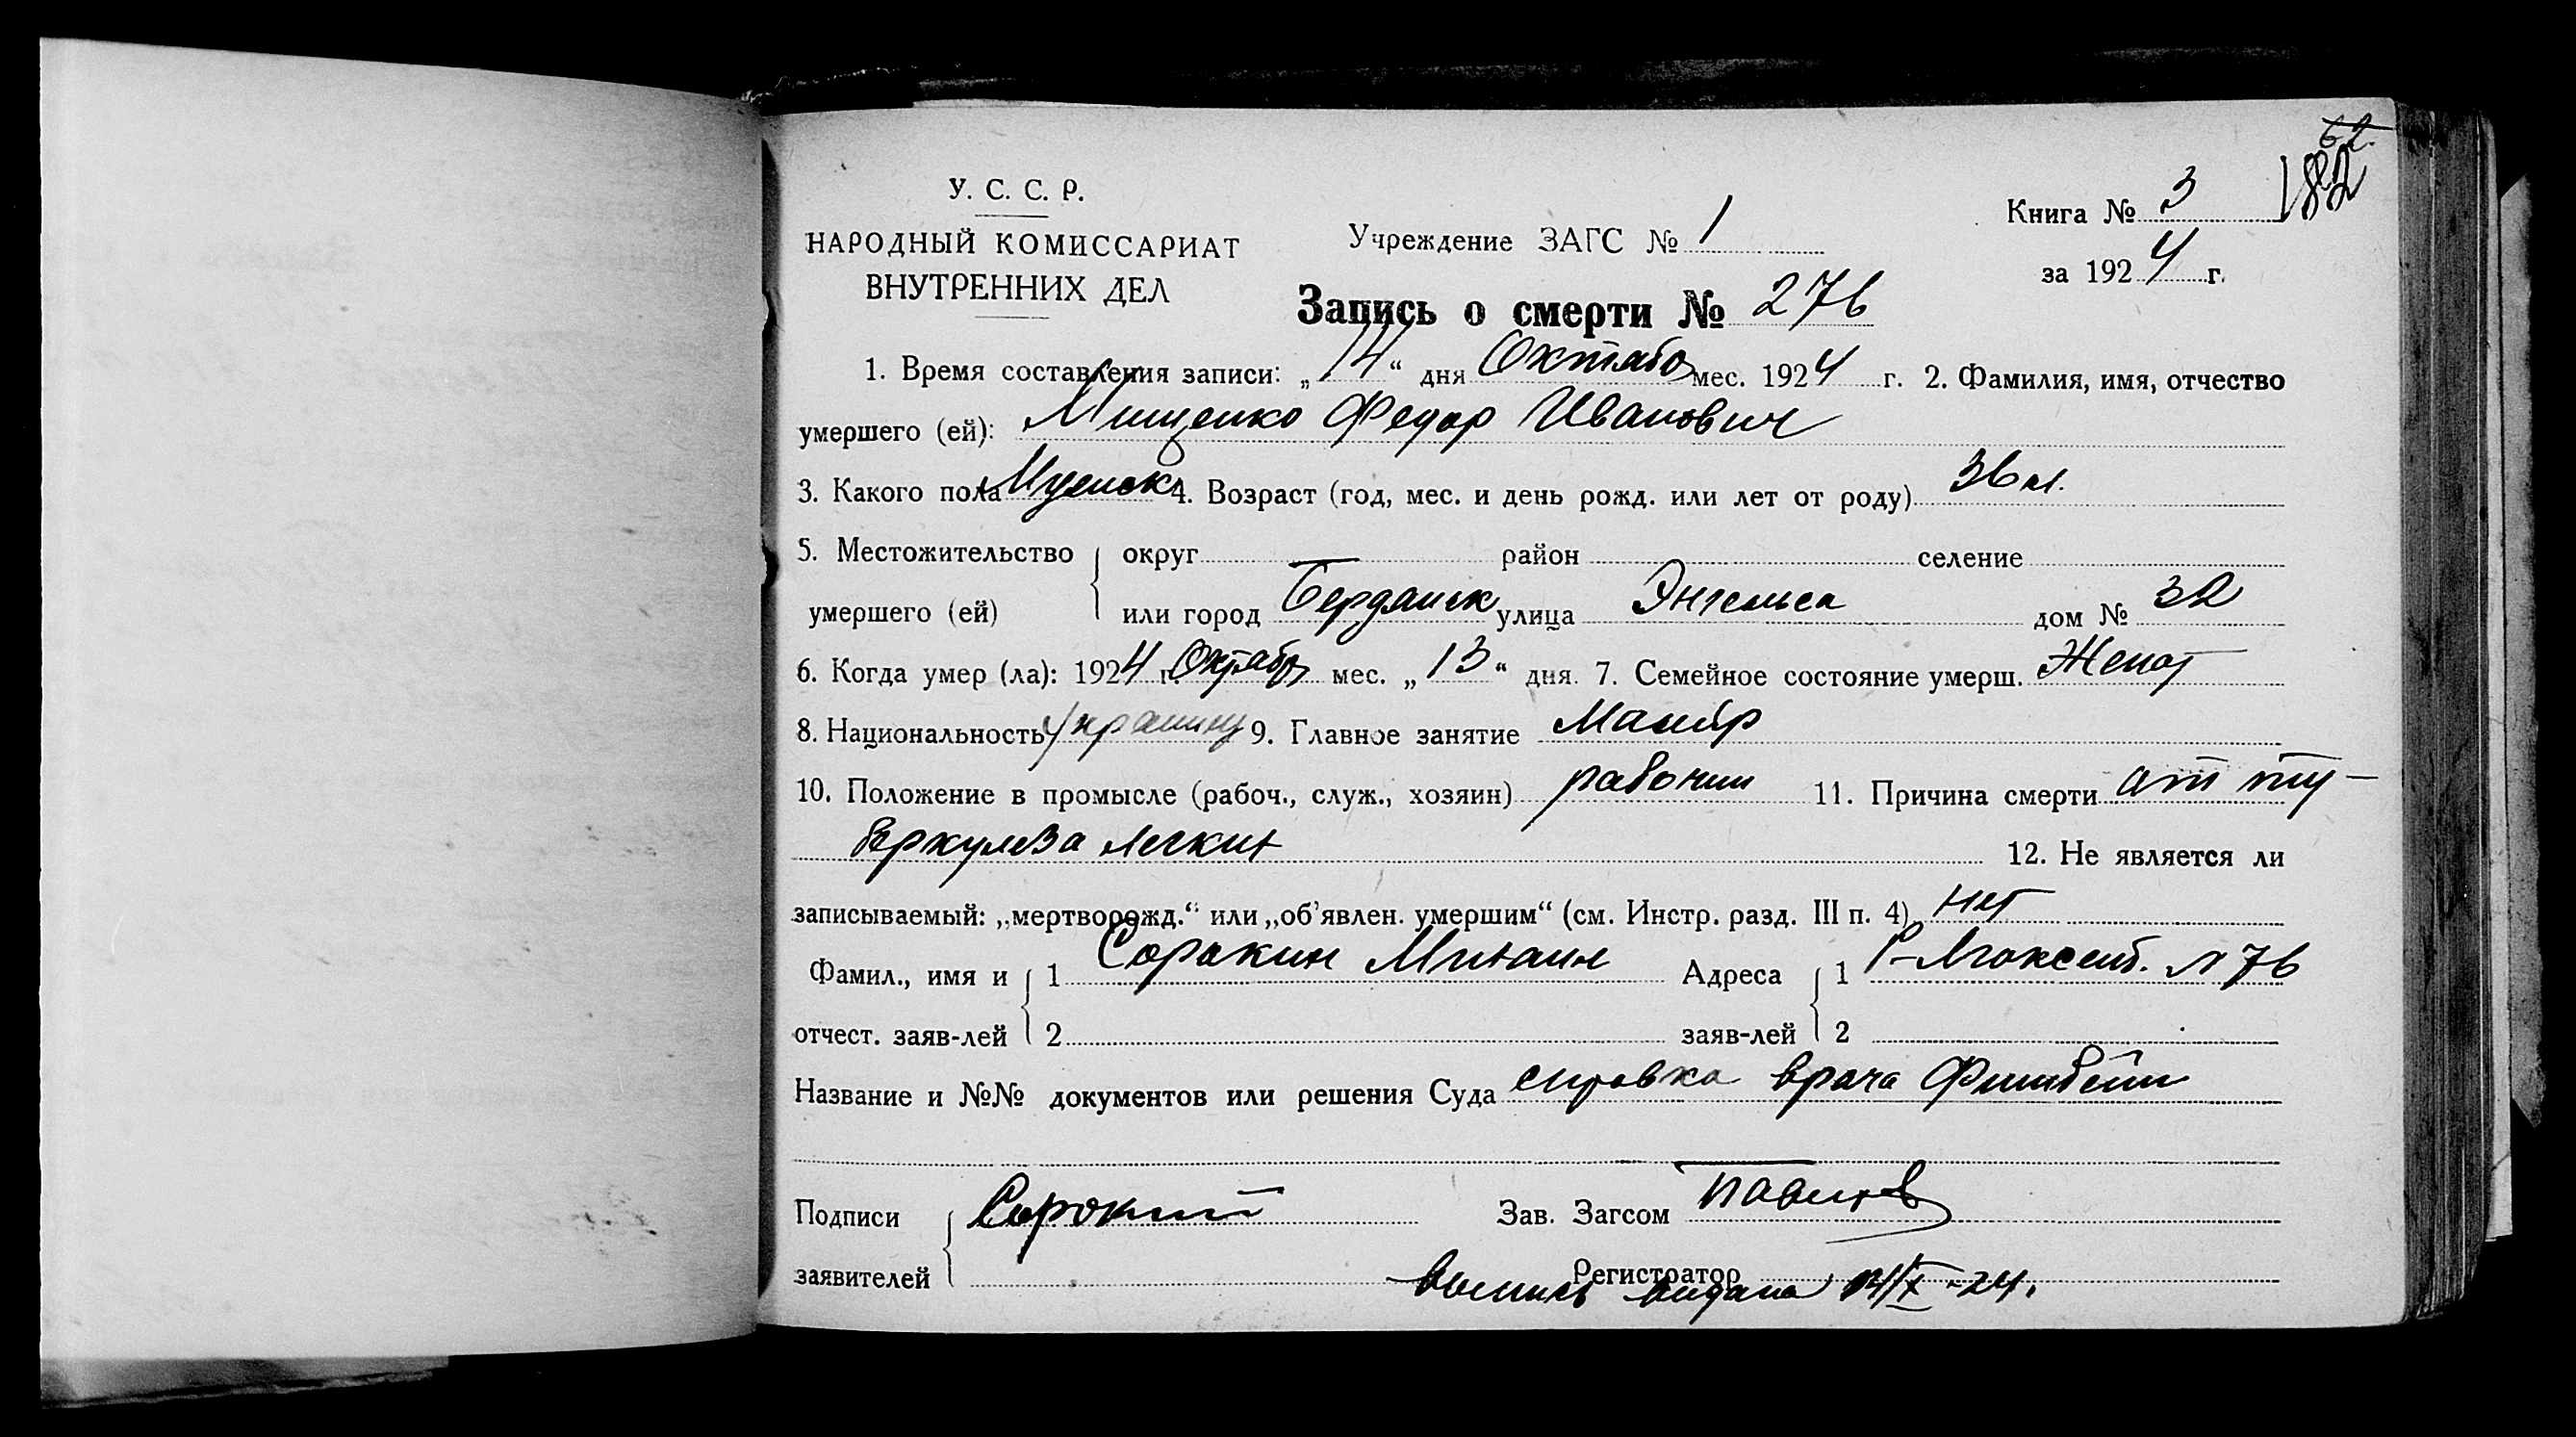 62.
182
У. С. С. Р.
НАРОДНЫЙ КОМИССАРИАТ
ВНУТРЕННИХ ДЕЛ
Учреждение ЗАГС № 1
Книга № 3
за 1924 г.
Запись о смерти № 276
1. Время составления записи: „14“ дня Октября мес. 1924 г. 2. Фамилия, имя, отчество
умершего (ей): Мищенко Федор Иванович
3. Какого пола Мужск 4. Возраст (год, мес. и день рожд. или лет от роду) 36 л.
5. Местожительство округ район селение
умершего (ей) или город Бердянск улица Энгельса дом № 32
6. Когда умер (ла): 1924 г. Октябр мес. „13“ дня. 7. Семейное состояние умерш. Женат
8. Национальность украинец 9. Главное занятие Маляр
10. Положение в промысле (рабоч., служ., хозяин) рабочий 11. Причина смерти от ту-
беркулеза легких 12. Не является ли
записываемый: „мертворожд.“ или „об’явлен. умершим“ (см. Инстр. разд. III п. 4) нет
Фамил., имя и 1 Сорокин Михаил Адреса 1 Р-Люксемб. № 76
отчест. заяв-лей 2 заяв-лей 2
Название и №№ документов или решения Суда справка врача Фишбейн
Подписи Сорокин Зав. Загсом
заявителей Регистратор
выпись выдана 14/X-24.